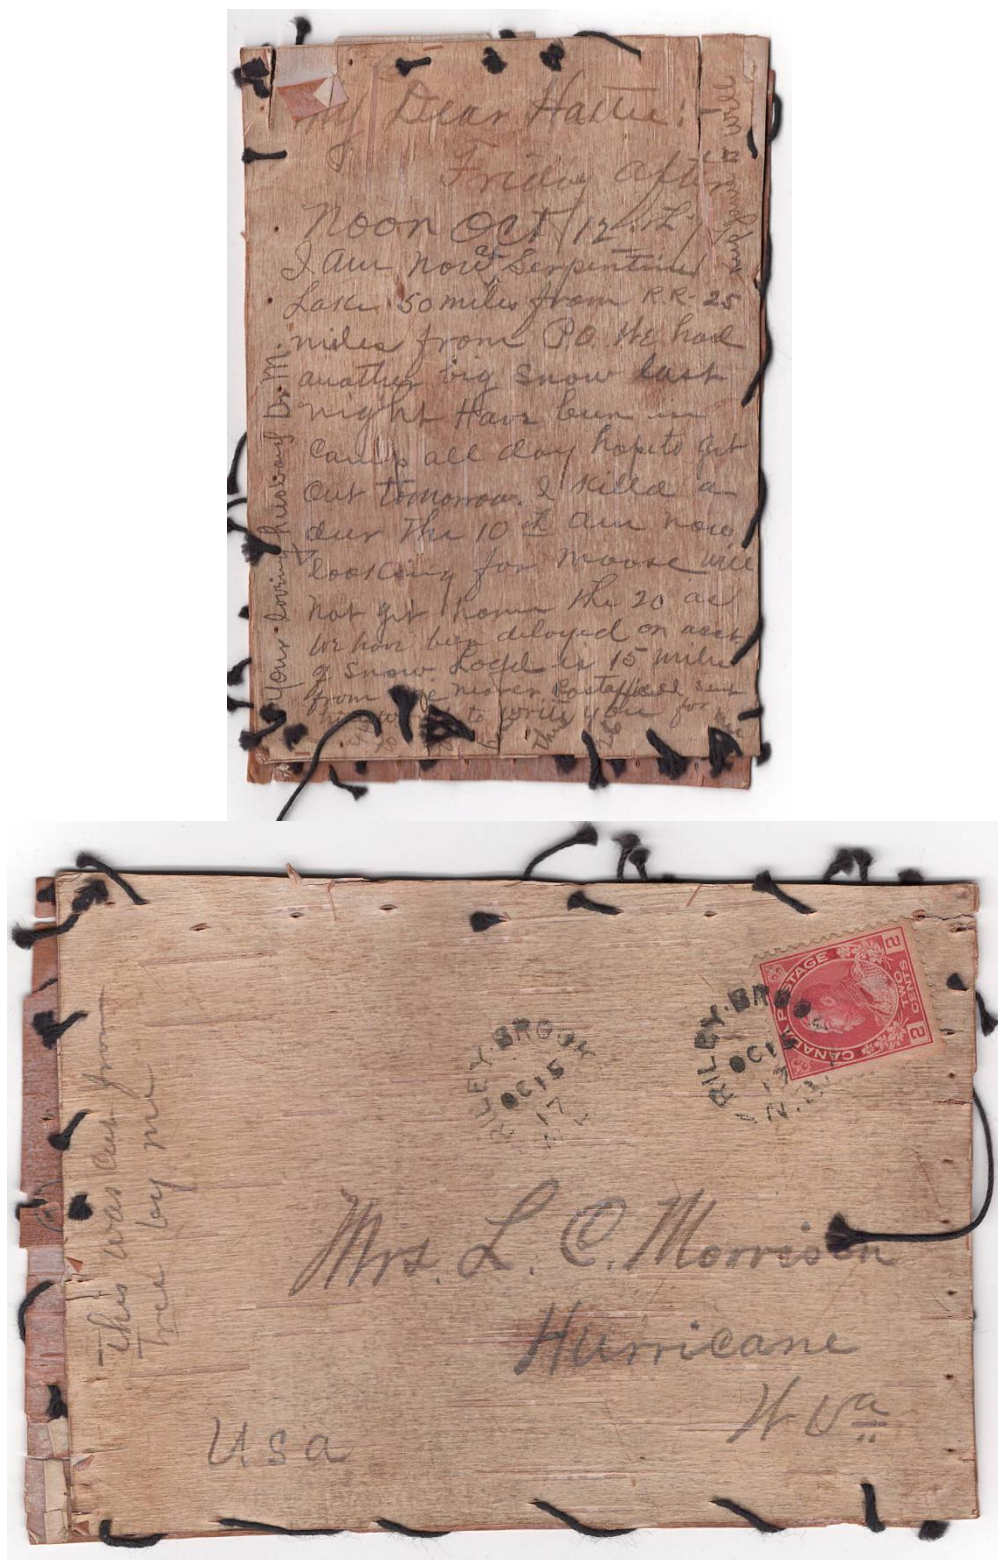 My Dear Hattie:-
Friday after
Noon Oct 12
I am now at Serpentine
Lake 50 miles from R.R. 25
miles from PO We had
another big snow last
night Have been in
Camp all day hope to get
out tomorrow. I killed a
deer the 10th am now
looking for moose will
not get home the 20 as
we have been delayed on acct
of snow. Lodge is 15 miles
from
to write
Your loving husband Dr. M.
This was cut from
tree by me
RILEY BROOK
OC 15
17
N.B.
RILEY BRO
OC 15
17
N.B.
CANADA POSTAGE
2 CENTS 2
Mrs. L. C. Morrison
Hurricane
W Va
USA